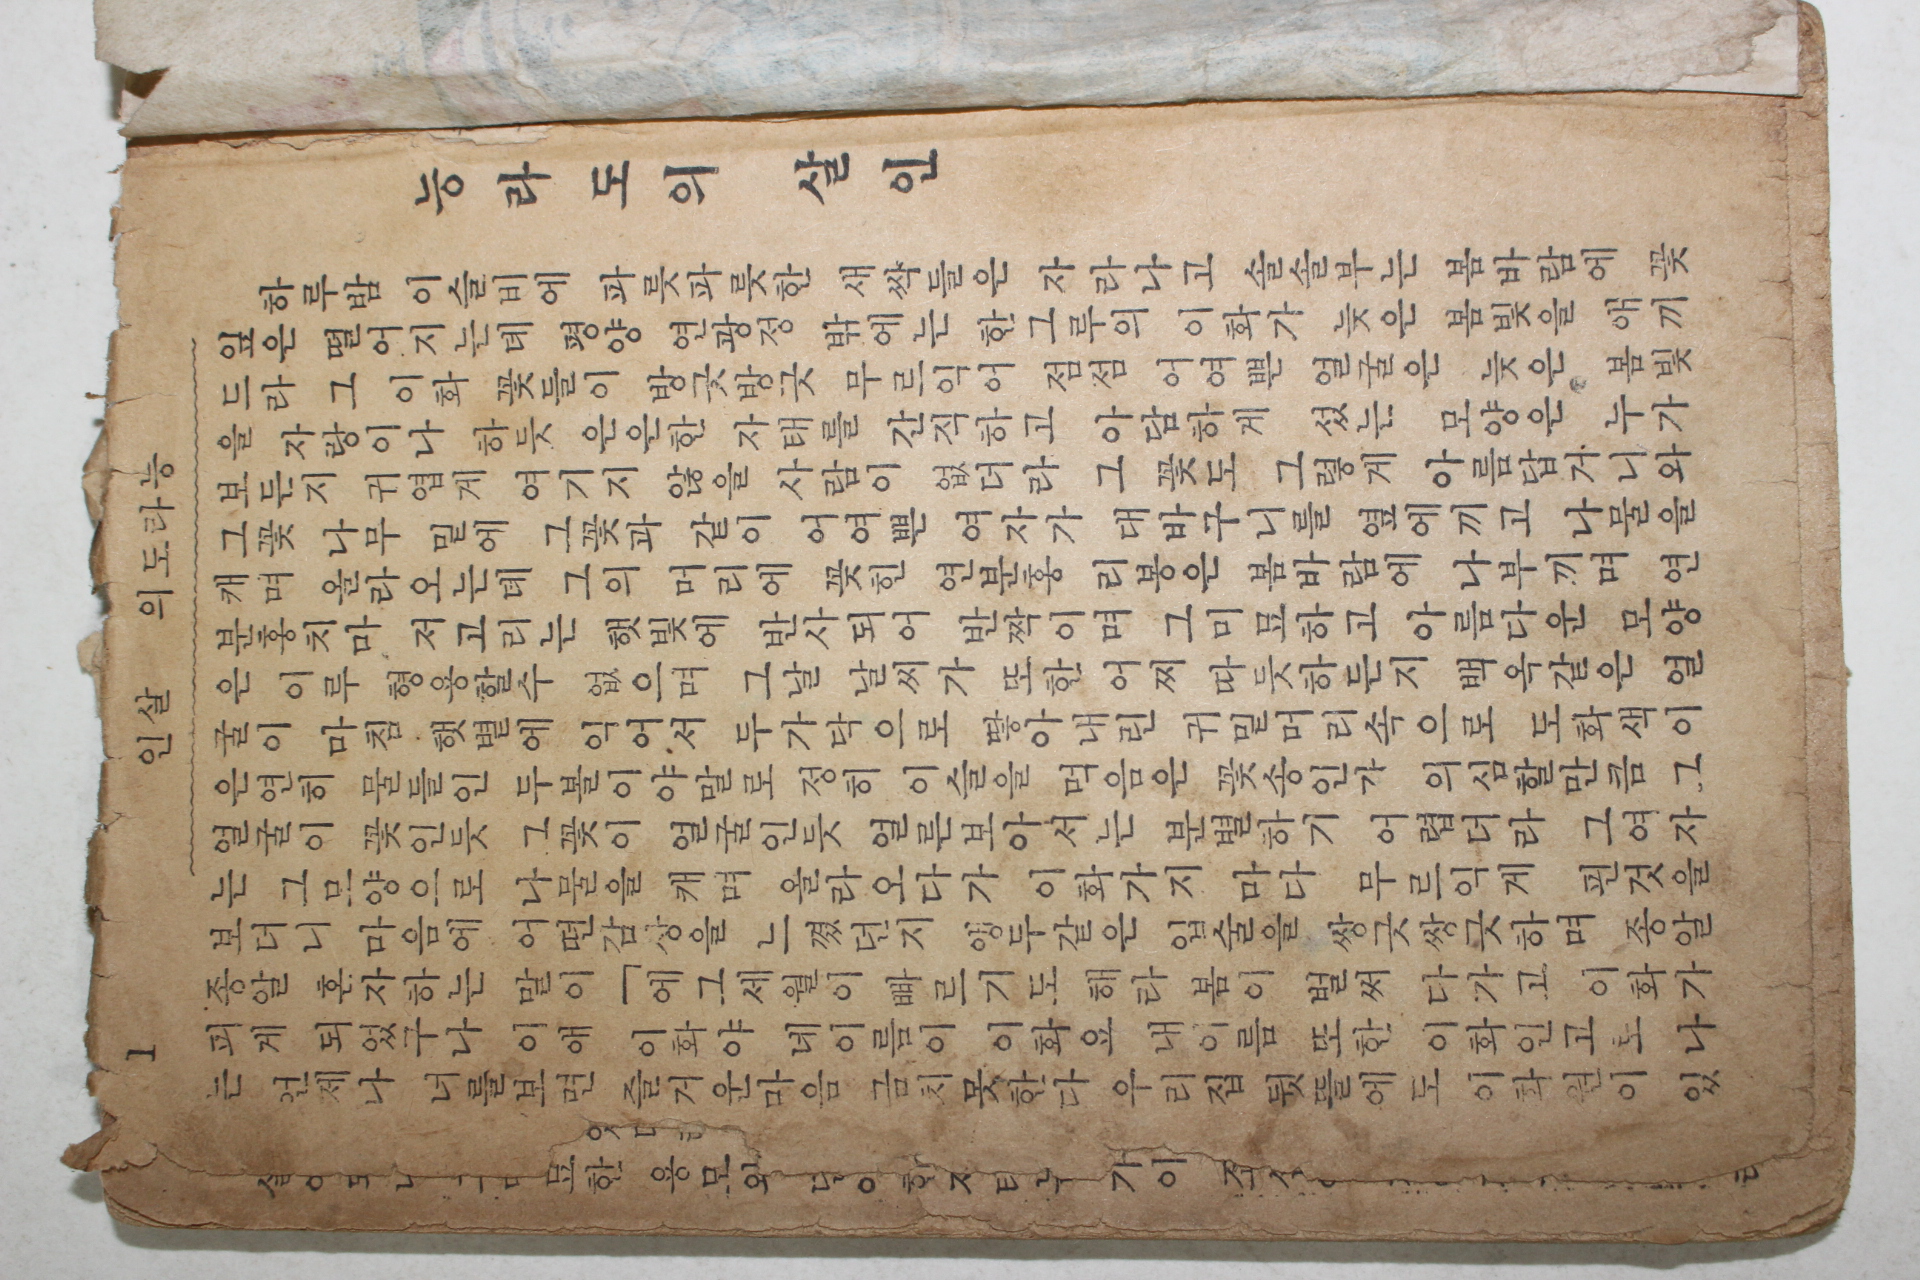 능라도의 살인
1
능라도의 살인
하루밤 이슬비에 파릇파릇한 새싹들은 자라나고 솔솔부는 봄바람에 꽃
잎은 떨어지는데 평양 연광정 밖에는 한그루의 이화가 늦은 봄빛을 애끼
드라 그 이화 꽃들이 방긋방긋 무르익어 점점 어여쁜 얼굴은 늦은 봄빛
을 자랑이나 하듯 은은한 자태를 간직하고 아담하게 섰는 모양은 누가
보든지 귀엽게 여기지 않을 사람이 없더라 그 꽃도 그렇게 아름답거니와
그꽃 나무 밑에 그꽃과 같이 어여쁜 여자가 대바구니를 옆에끼고 나물을
캐며 올라오는데 그의 머리에 꽃힌 연분홍 리봉은 봄바람에 나부끼며 연
분홍치마 저고리는 햇빛에 반사되어 반짝이며 그미묘하고 아름다운 모양
은 이루 형용할수 없으며 그날 날씨가 또한 어찌 따듯하든지 백옥같은 얼
굴이 마침 햇볕에 익어서 두가닥으로 땋아내린 귀밑머리속으로 도화색이
은연히 물들인 두볼이야말로 정히 이슬을 먹음은 꽃송인가 의심할만큼 그
얼굴이 꽃인듯 그꽃이 얼굴인듯 얼른보아서는 분별하기 어렵더라 그여자
는 그모양으로 나물을 캐며 올라오다가 이화가지 마다 무르익게 핀것을
보더니 마음에 어떤감상을 느꼈던지 앵두같은 입술을 쌍긋쌍긋하며 종알
종알 혼자하는 말이 「에그세월이 빠르기도 해라 봄이 벌써 다가고 이화가
피게 되었구나 이애 이화야 네이름이 이화요 내이름 또한 이화인고로 나
는 언제나 너를보면 즐거운마음 금치못한다 우리집 뒷뜰에도 이화원이 있
묘한 용모와 가이